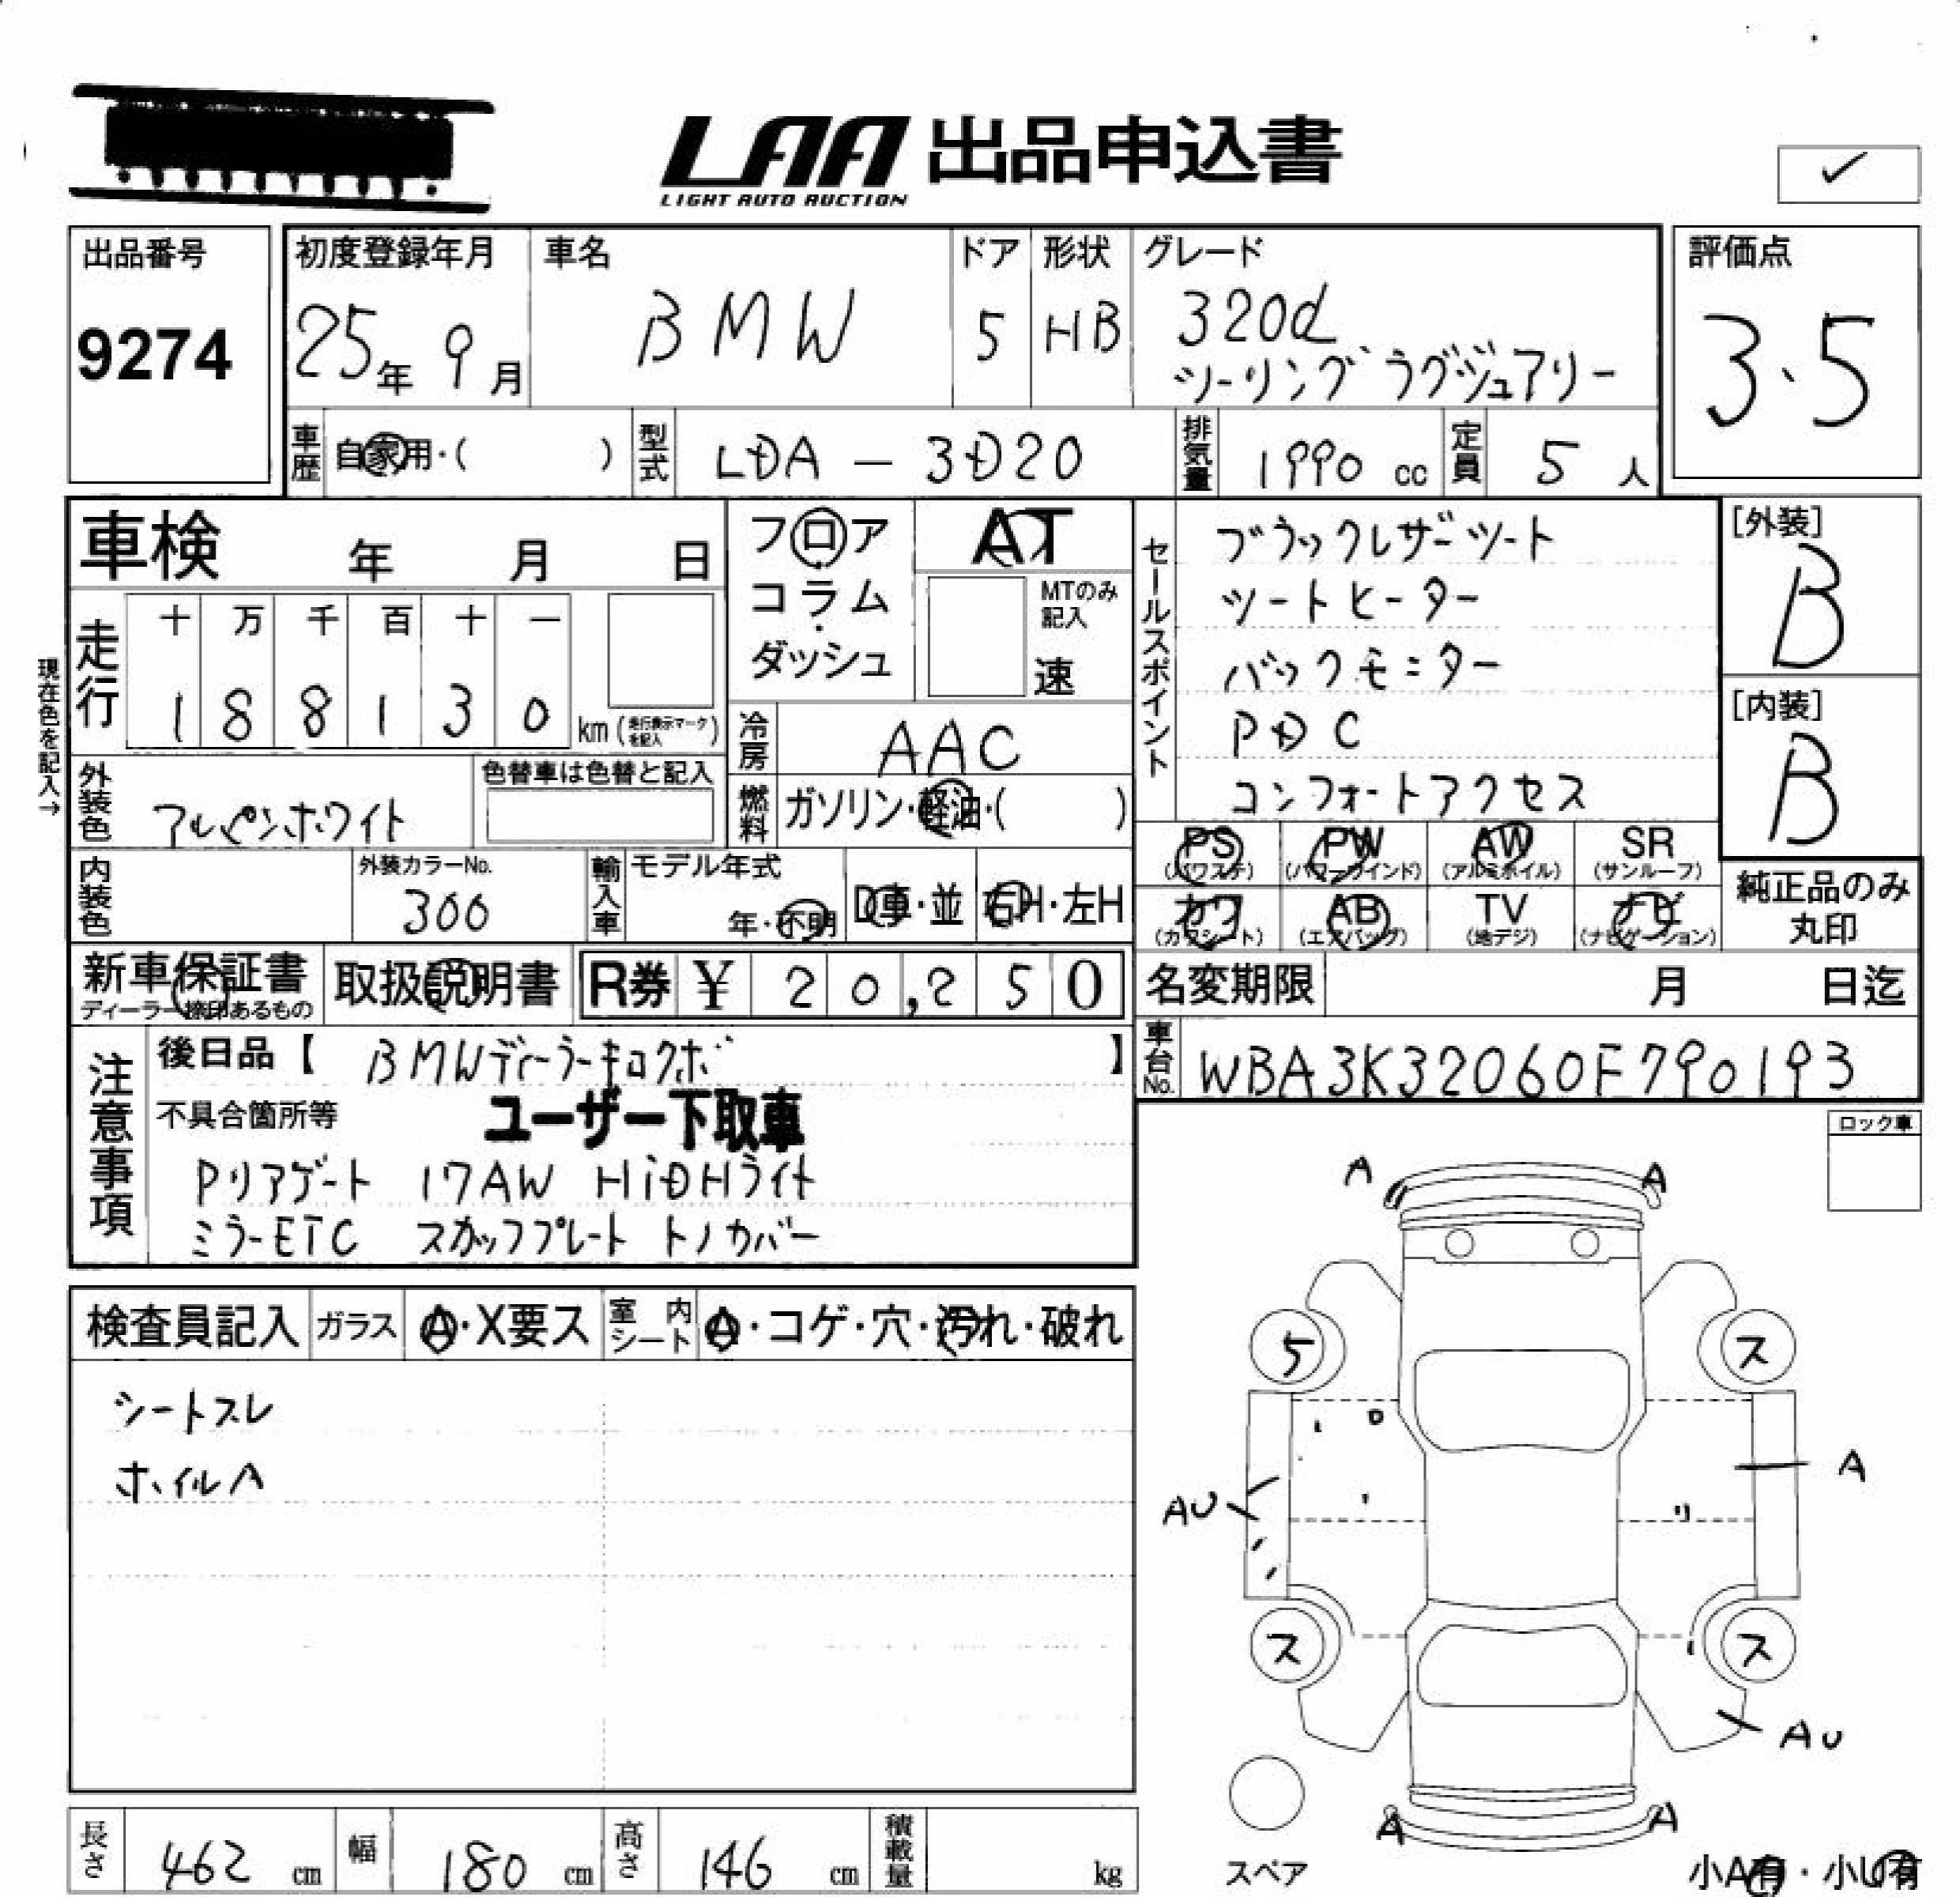 LAA 出品申込書
LIGHT AUTO AUCTION
✓
出品番号
9274
初度登録年月
25年 9月
車名
BMW
ドア
5
形状
HB
グレード
320d
ツーリング ラグジュアリー
評価点
3.5
車歴 自家用・( )
型式 LDA - 3D20
排気量 1990 cc
定員 5 人
車検 年 月 日
フロア
コラム
・
ダッシュ
AT
MTのみ
記入
速
セールスポイント
ブラックレザーシート
シートヒーター
バックモニター
PDC
コンフォートアクセス
[外装]
B
[内装]
B
現在色を記入→
走行
十 万 千 百 十 一
1 8 8 1 3 0 km (走行表示マークを記入)
冷房 AAC
外装色 アルペンホワイト
色替車は色替と記入
燃料 ガソリン・軽油・( )
内装色
外装カラーNo.
300
輸入車
モデル年式
年・不明
D車・並
右H・左H
PS (パワステ)
PW (パワーウインド)
AW (アルミホイル)
SR (サンルーフ)
カワ (カワシート)
AB (エアバッグ)
TV (地デジ)
ナビ (ナビゲーション)
純正品のみ
丸印
新車保証書
ディーラー捺印あるもの
取扱説明書
R券 ¥ 20,250
名変期限 月 日迄
車台No. WBA3K32060F790193
注意事項
後日品【 BMWディーラーキロクボ 】
不具合箇所等
ユーザー下取車
Pリアゲート 17AW HiDHライト
ミラーETC スカッフプレート トノカバー
ロック車
検査員記入
ガラス A・X要ス
室内シート A・コゲ・穴・汚れ・破れ
シートスレ
ホイルA
A A
5 ス
A
AU
ス ス
AU
A A
スペア
小A有・小U有
長さ 462 cm
幅 180 cm
高さ 146 cm
積載量 kg